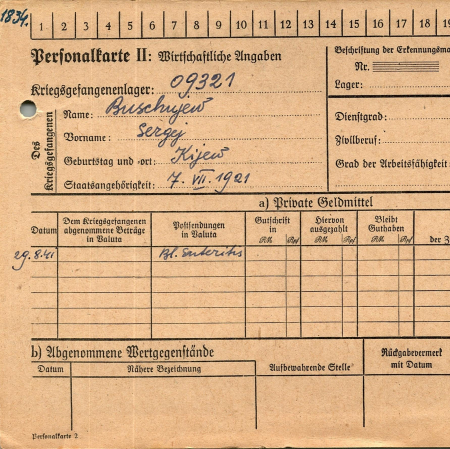 1834.
1 2 3 4 5 6 7 8 9 10 11 12 13 14 15 16 17 18 19
Personalkarte II: Wirtschaftliche Angaben
Kriegsgefangenenlager: 09321
Des Kriegsgefangenen
Name: Buschujew
Vorname: Sergej
Geburtstag und -ort: Kijew
Staatsangehörigkeit: 7. VII. 1921
Beschriftung der Erkennungsma
Nr.
Lager:
Dienstgrad:
Zivilberuf:
Grad der Arbeitsfähigkeit
a) Private Geldmittel
Datum
Dem Kriegsgefangenen abgenommene Beträge in Valuta
Postsendungen in Valuta
Gutschrift in
RM Rpf
Hiervon ausgezahlt
RM Rpf
Bleibt Guthaben
RM Rpf
der
29.8.41 Bl. Enteritis
b) Abgenommene Wertgegenstände
Datum
Nähere Bezeichnung
Aufbewahrende Stelle
Rückgabevermerk mit Datum
Personalkarte 2